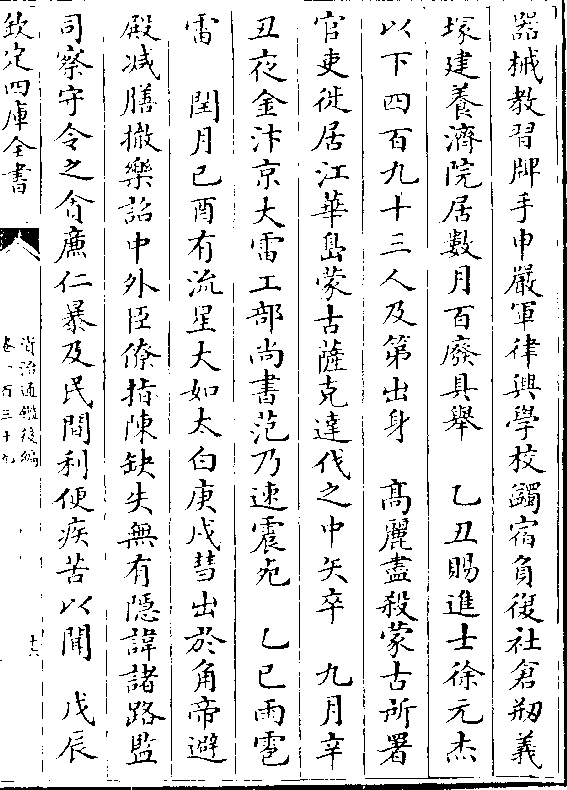 器械教習牌手申嚴軍律興學校蠲宿負復社倉剏義
塚建養濟院居數月百廢具舉　乙丑賜進士徐元杰
以下四百九十三人及第出身　高麗盡殺蒙古所署
官吏徙居江華島蒙古薩克達伐之中矢卒　九月辛
丑夜金汴京大雷工部尚書范乃速震死　乙巳雨雹
雷　閏月己酉有流星大如太白庚戌彗出於角帝避
殿减膳撤樂詔中外臣僚指陳缺失無有隱諱諸路監
司察守令之貪廉仁暴及民間利便疾苦以聞　戊辰
欽定四庫全書
資治通鑑後編
卷一百三十九
十六